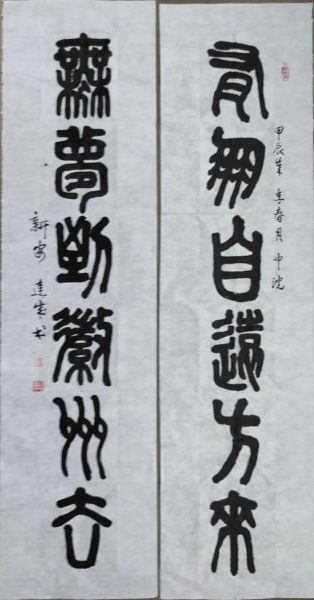 有朋自遠方來
甲辰年季春月中浣
無夢到徽州去
新安